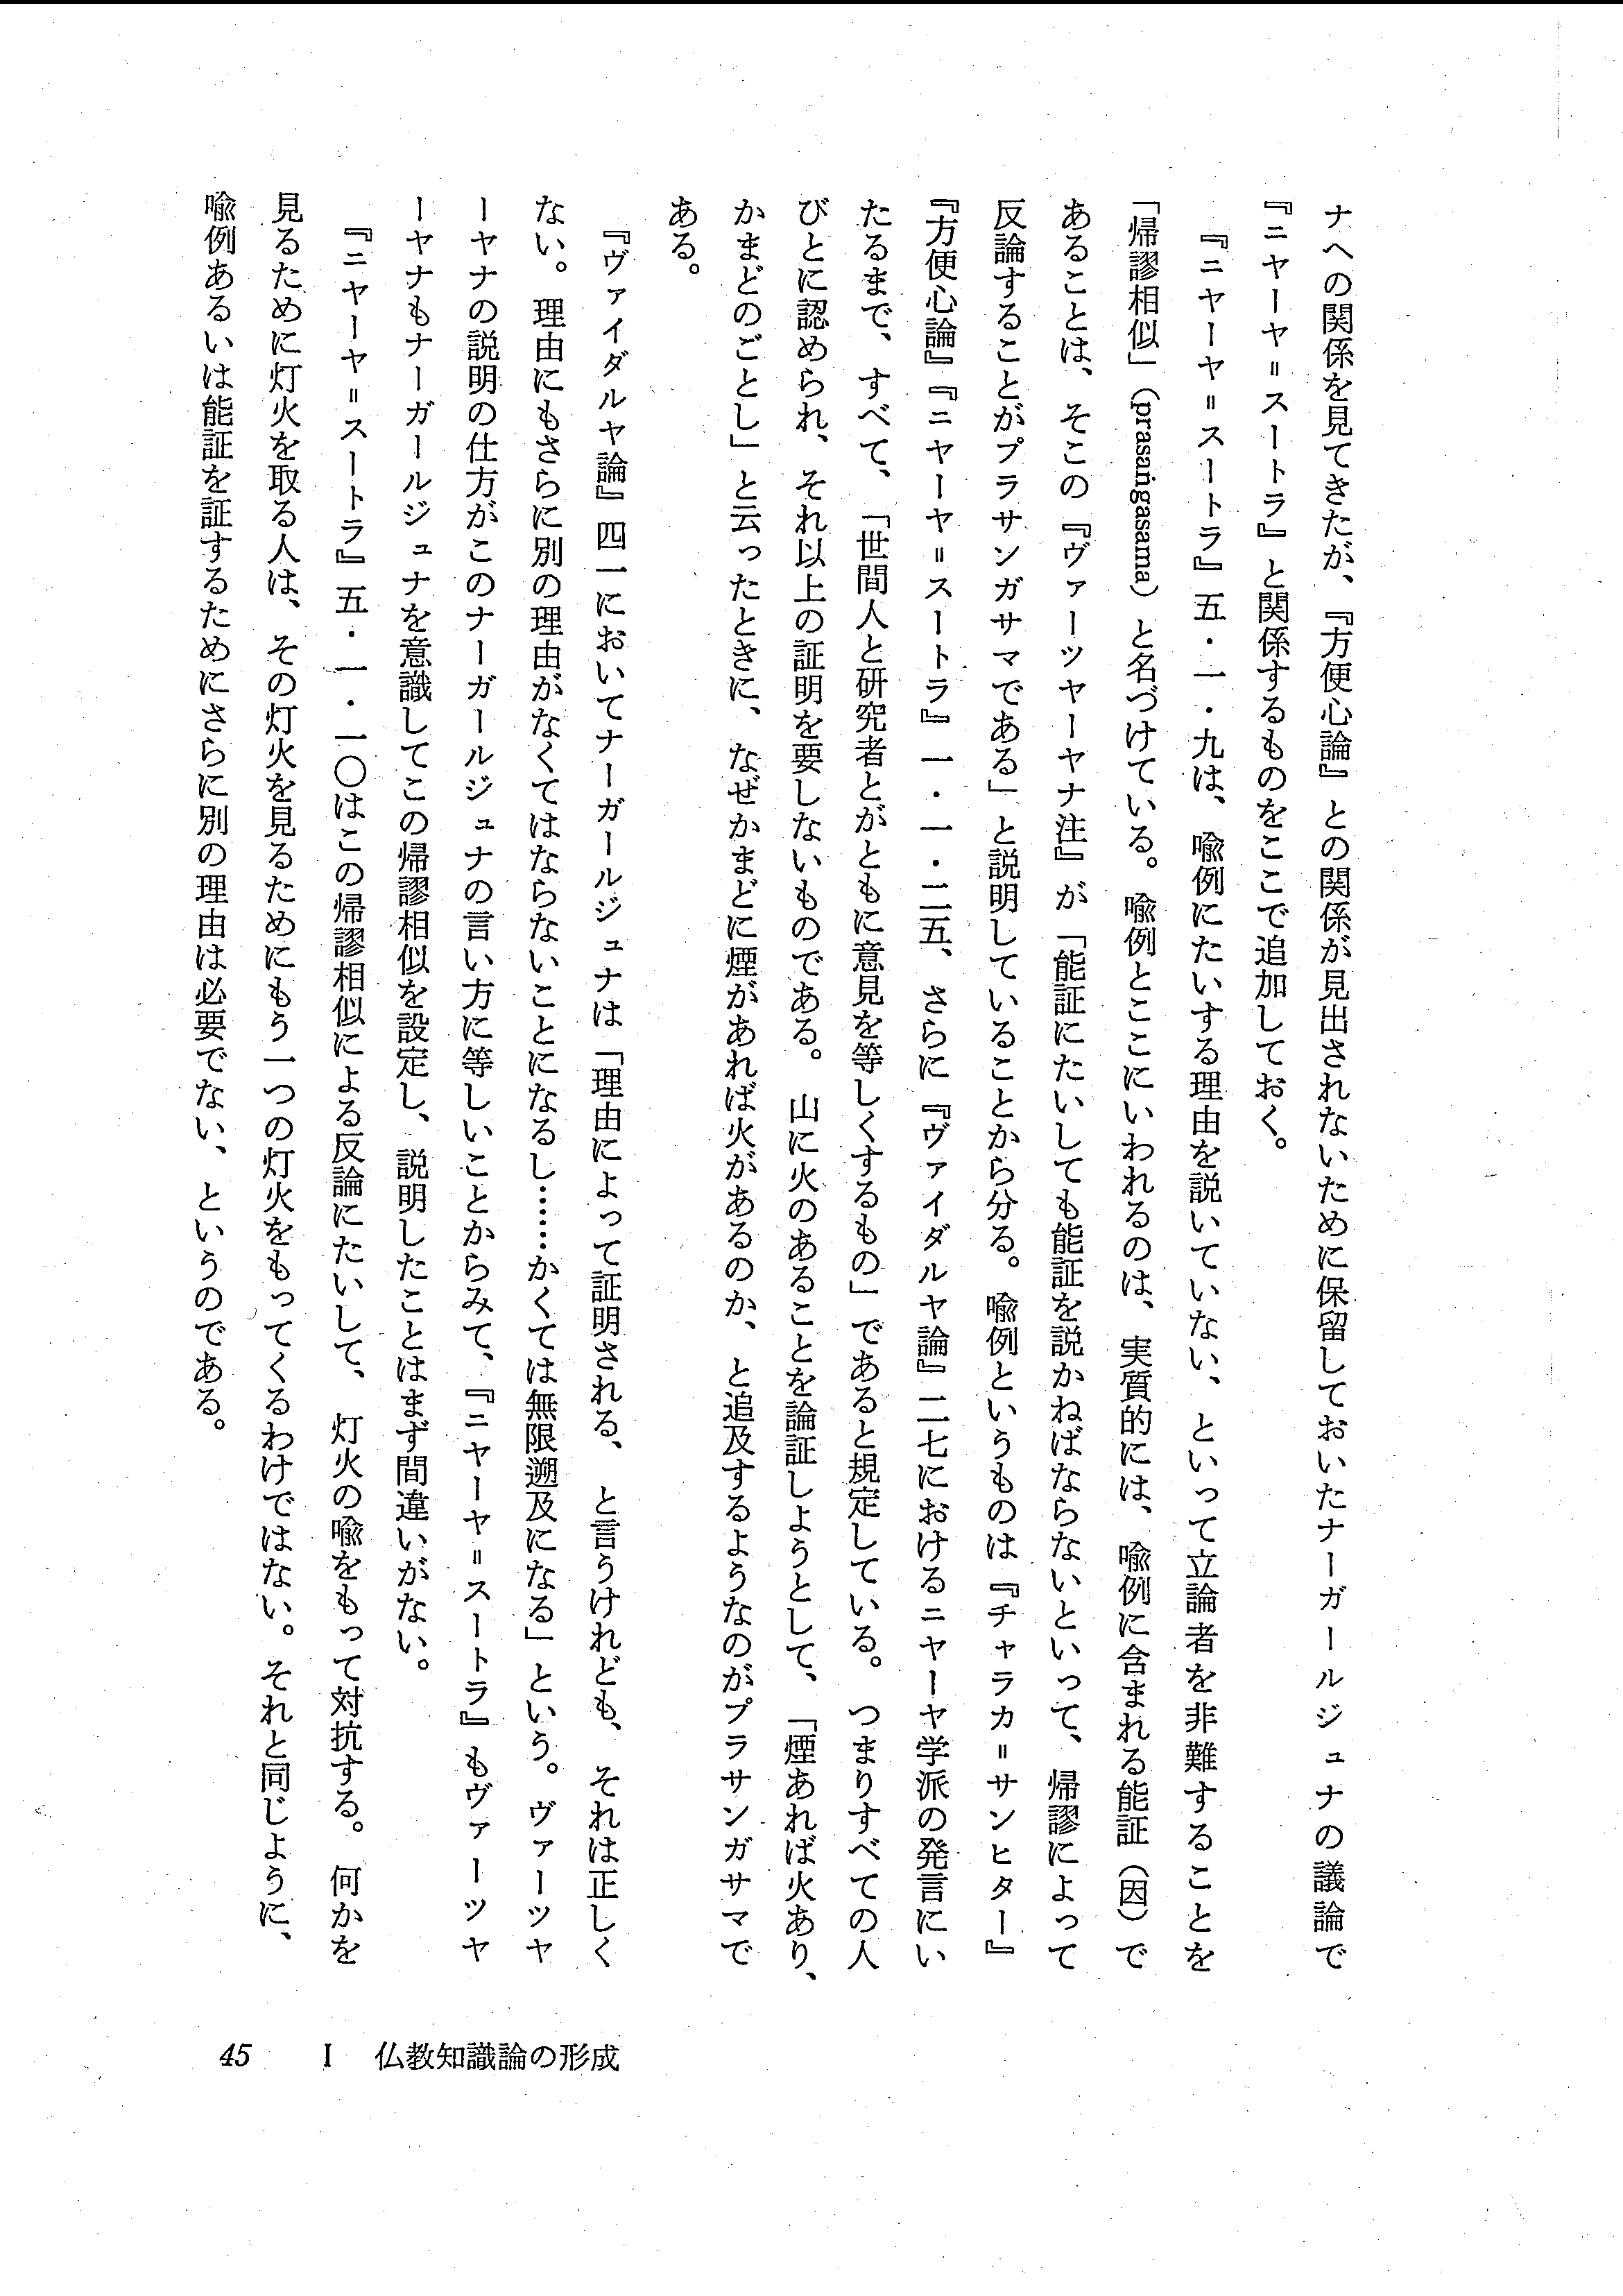 ナへの関係を見てきたが、『方便心論』との関係が見出されないために保留しておいたナーガールジュナの議論で
『ニヤーヤ＝スートラ』と関係するものをここで追加しておく。
『ニヤーヤ＝スートラ』五・一・九は、喩例にたいする理由を説いていない、といって立論者を非難することを
「帰謬相似」（prasaṅgasama）と名づけている。喩例とここにいわれるのは、実質的には、喩例に含まれる能証（因）で
あることは、そこの『ヴァーツヤーヤナ注』が「能証にたいしても能証を説かねばならないといって、帰謬によって
反論することがプラサンガサマである」と説明していることから分る。喩例というものは『チャラカ＝サンヒター』
『方便心論』『ニヤーヤ＝スートラ』一・一・二五、さらに『ヴァイダルヤ論』二七におけるニヤーヤ学派の発言にい
たるまで、すべて、「世間人と研究者とがともに意見を等しくするもの」であると規定している。つまりすべての人
びとに認められ、それ以上の証明を要しないものである。山に火のあることを論証しようとして、「煙あれば火あり、
かまどのごとし」と云ったときに、なぜかまどに煙があれば火があるのか、と追及するようなのがプラサンガサマで
ある。
『ヴァイダルヤ論』四一においてナーガールジュナは「理由によって証明される、と言うけれども、それは正しく
ない。理由にもさらに別の理由がなくてはならないことになるし……かくては無限遡及になる」という。ヴァーツヤ
ーヤナの説明の仕方がこのナーガールジュナの言い方に等しいことからみて、『ニヤーヤ＝スートラ』もヴァーツヤ
ーヤナもナーガールジュナを意識してこの帰謬相似を設定し、説明したことはまず間違いがない。
『ニヤーヤ＝スートラ』五・一・一〇はこの帰謬相似による反論にたいして、灯火の喩をもって対抗する。何かを
見るために灯火を取る人は、その灯火を見るためにもう一つの灯火をもってくるわけではない。それと同じように、
喩例あるいは能証を証するためにさらに別の理由は必要でない、というのである。
45 I 仏教知識論の形成